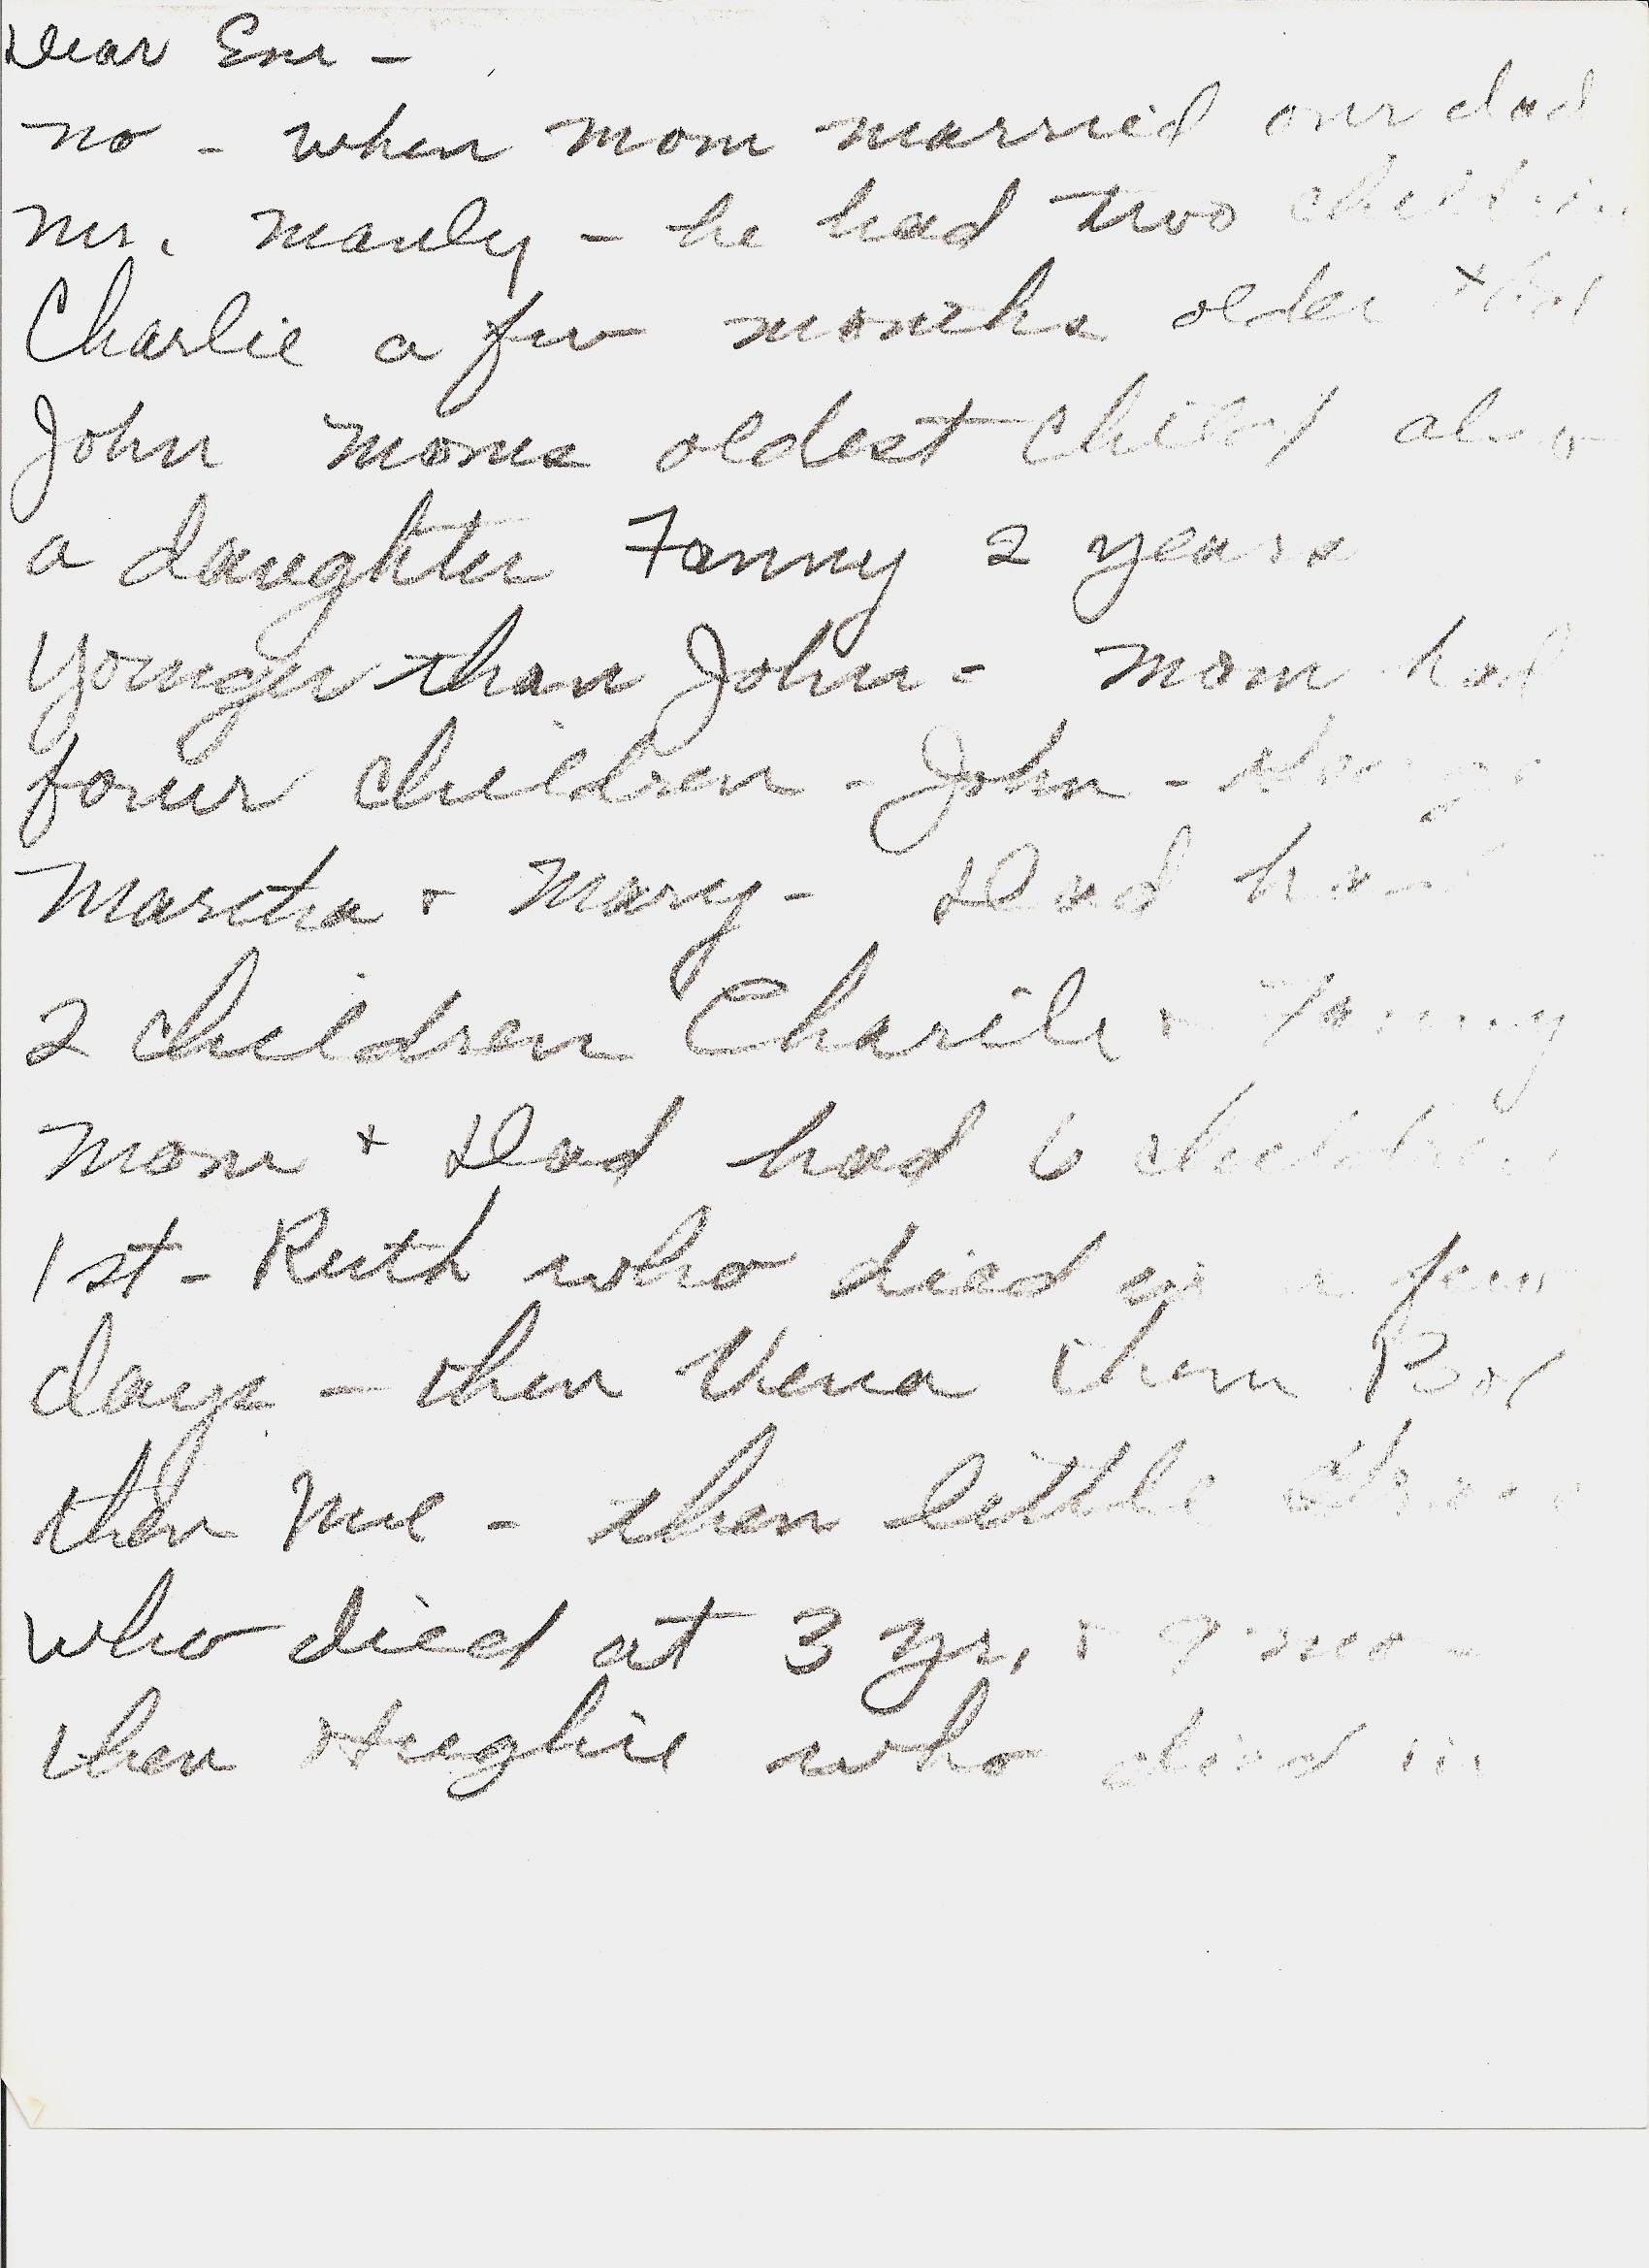 Dear Em -
no - when mom married our dad
Mr. Manly - he had two children
Charlie a few months older than
John moms oldest child also
a daughter Fanny 2 years
younger than John - Mom had
four children - John -
Martha + Mary - Dad had
2 children Charile + Fanny
Mom + Dad had 6 children
1st - Ruth who died in a few
days - then Vena then
then me - then little
who died at 3 yr, + 9 mo -
then Hughie who died in